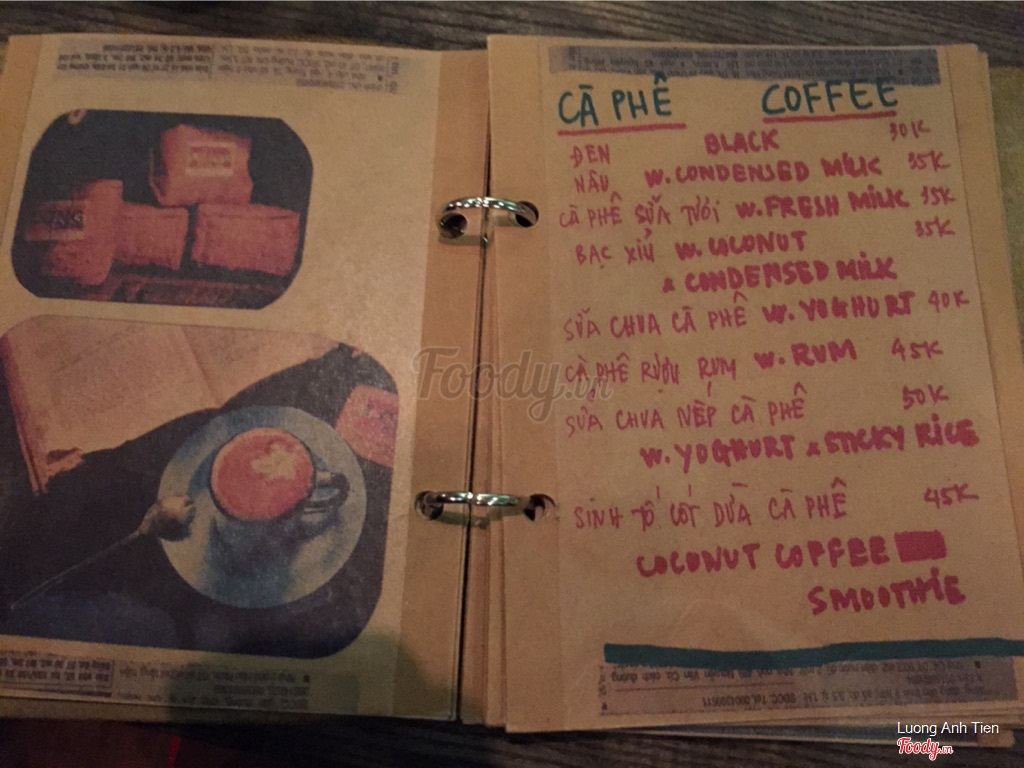 CÀ PHÊ COFFEE
ĐEN BLACK 30K
NÂU W. CONDENSED MILK 35K
CÀ PHÊ SỮA TƯƠI W. FRESH MILK 35K
BẠC XỈU W. COCONUT 35K
& CONDENSED MILK
SỮA CHUA CÀ PHÊ W. YOGHURT 40K
CÀ PHÊ RƯỢU RUM W. RUM 45K
SỮA CHUA NẾP CÀ PHÊ 50K
W. YOGHURT & STICKY RICE
SINH TỐ CỐT DỪA CÀ PHÊ 45K
COCONUT COFFEE
SMOOTHIE
Foody.vn
Luong Anh Tien
Foody.vn